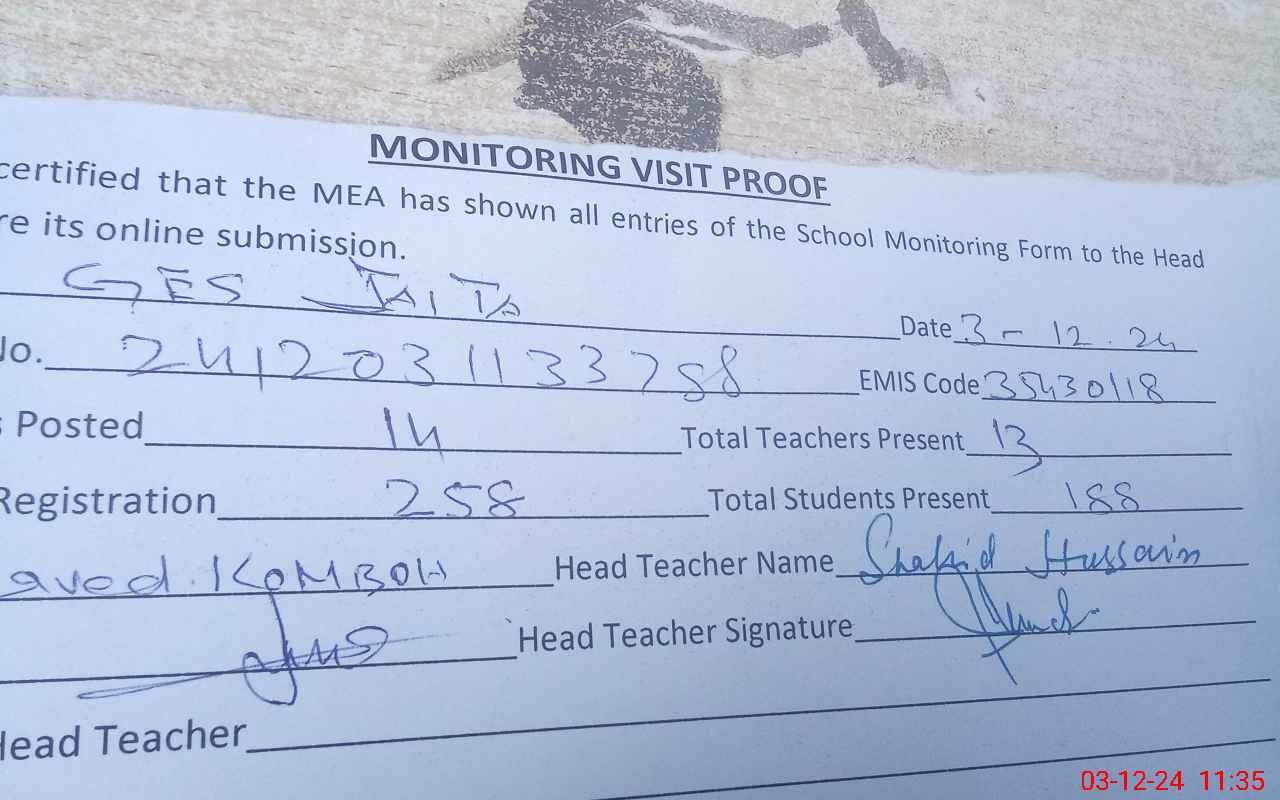 MONITORING VISIT PROOF
certified that the MEA has shown all entries of the School Monitoring Form to the Head
re its online submission.
GES JAITA Date 3-12.24
No. 2412031133788 EMIS Code 35430118
s Posted 14 Total Teachers Present 13
Registration 258 Total Students Present 188
aved KOMBOH Head Teacher Name Shahid Hussain
Head Teacher Signature
Head Teacher
03-12-24 11:35